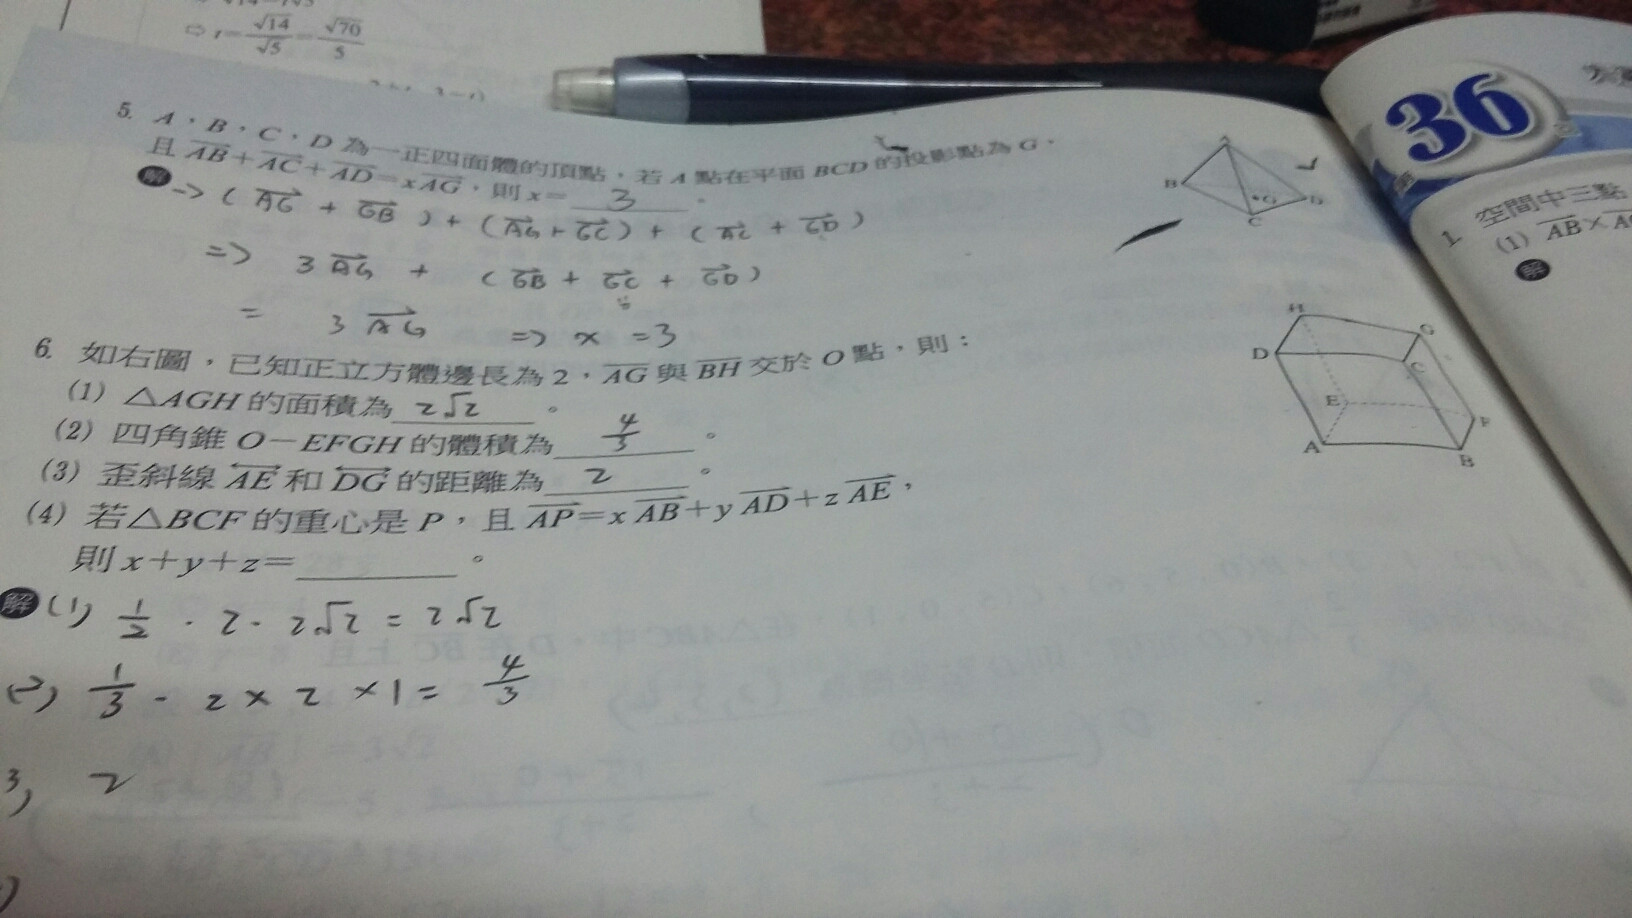 ⇨ t=√14/√5=√70/5
5. A、B、C、D 為一正四面體的頂點，若 A 點在平面 BCD 的投影點為 G，
且 AB+AC+AD=xAG，則 x= 3 。
解 -> (AG + GB) + (AG + GC) + (AG + GD)
=> 3AG + (GB + GC + GD)
= 3AG => x = 3
A
B
G
D
C
6. 如右圖，已知正立方體邊長為 2，AG 與 BH 交於 O 點，則：
(1) △AGH 的面積為 2√2 。
(2) 四角錐 O－EFGH 的體積為 4/3 。
(3) 歪斜線 AE 和 DG 的距離為 2 。
(4) 若△BCF 的重心是 P，且 AP=xAB+yAD+zAE，
則 x+y+z= 。
H
G
D
C
E
F
A
B
解 (1) 1/2 · 2 · 2√2 = 2√2
(2) 1/3 · 2 × 2 × 1 = 4/3
3) 2
36
1. 空間中三點
(1) AB×A
解